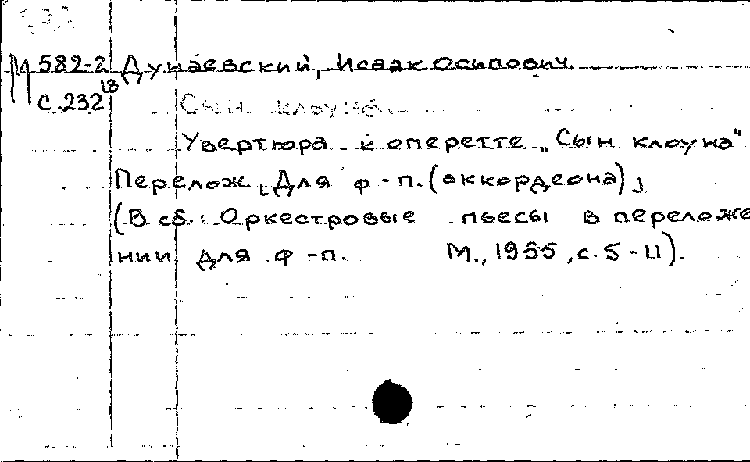 М 589-2 Дунаевский, Исаак Осипович.
С.232 Сын клоуна.
Увертюра к оперетте „Сын клоуна"
Перелож. Для ф-п. (аккордеона),
(В сб.: Оркестровые пьесы в переложе
нии для ф-п. М., 1955, с. 5-11).